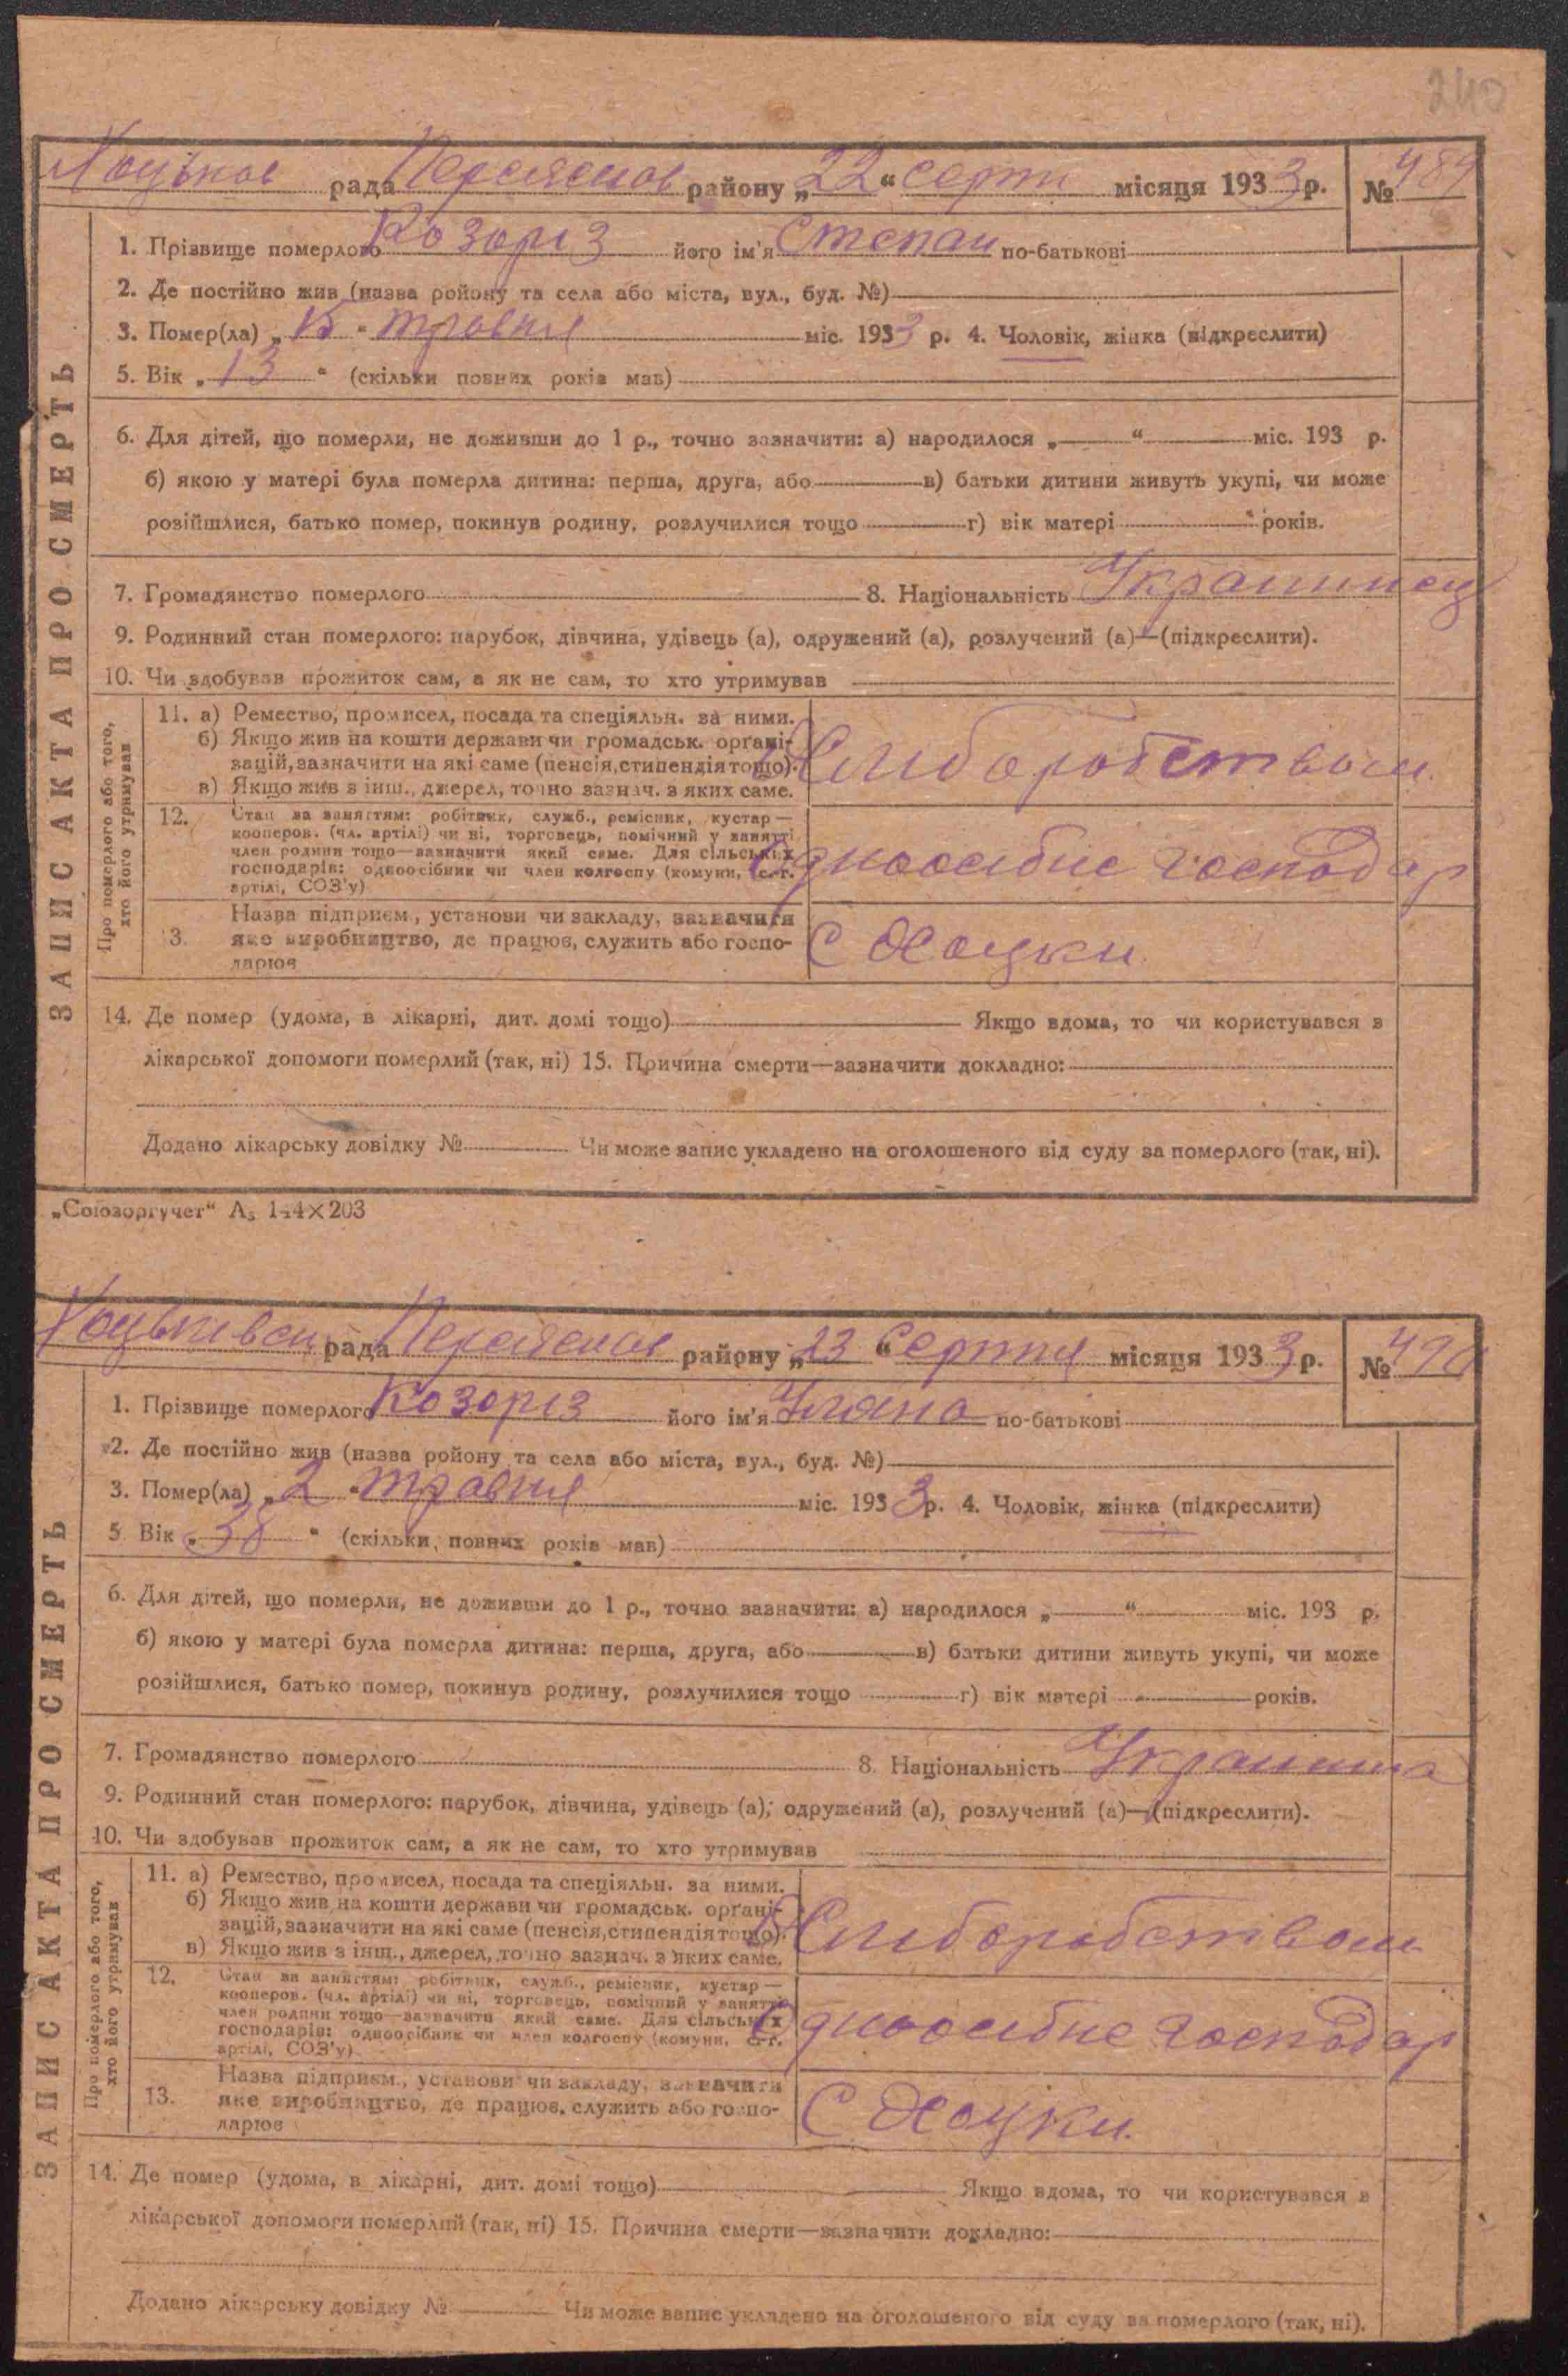 240
Хоцьков рада Переяслов району „22“ серпн місяця 1933 р. № 489
1. Прізвище померлого Козоріз його ім'я Степан по-батькові
2. Де постійно жив (назва ройону та села або міста, вул., буд. №)
3. Помер(ла) „15“ травня міс. 1933 р. 4. Чоловік, жінка (підкреслити)
5. Вік „13“ (скільки повних років мав)
6. Для дітей, що померли, не доживши до 1 р., точно зазначити: а) народилося „ “ міс. 193 р.
б) якою у матері була померла дитина: перша, друга, або в) батьки дитини живуть укупі, чи може
розійшлися, батько помер, покинув родину, розлучилися тощо г) вік матері років.
7. Громадянство померлого 8. Національність Украинец
9. Родинний стан померлого: парубок, дівчина, удівець (а), одружений (а), розлучений (а)—(підкреслити).
10. Чи здобував прожиток сам, а як не сам, то хто утримував
Про померлого або того, хто його утримував
11. а) Ремество, промисел, посада та спеціяльн. за ними.
б) Якщо жив на кошти держави чи громадськ. органі-
зацій, зазначити на які саме (пенсія, стипендія тощо).
в) Якщо жив з інш., джерел, точно зазнач. з яких саме.
Хліборобством
12. Стан за заняттям: робітник, служб., ремісник, кустар—
кооперов. (чл. артілі) чи ні, торговець, помічний у занятті
член родини тощо—зазначити який саме. Для сільських
господарів: одноосібник чи член колгоспу (комуни, с.-г.
артілі, СОЗ'у)
Одноосібне господар
13. Назва підприєм., установи чи закладу, зазначити
яке виробництво, де працює, служить або госпо-
дарює
С Хоцки.
14. Де помер (удома, в лікарні, дит. домі тощо) Якщо вдома, то чи користувався в
лікарської допомоги померлий (так, ні) 15. Причина смерти—зазначити докладно:
Додано лікарську довідку № Чи може запис укладено на оголошеного від суду за померлого (так, ні).
ЗАПИС АКТА ПРО СМЕРТЬ
„Союзоргучет“ А5 144×203
Хоцьківсь рада Переяслов району „23“ Серпня місяця 1933 р. № 490
1. Прізвище померлого Козоріз його ім'я Уляна по-батькові
2. Де постійно жив (назва ройону та села або міста, вул., буд. №)
3. Помер(ла) „2“ травня міс. 1933 р. 4. Чоловік, жінка (підкреслити)
5 Вік „38“ (скільки повних років мав)
6. Для дітей, що померли, не доживши до 1 р., точно зазначити: а) народилося „ “ міс. 193 р.
б) якою у матері була померла дитина: перша, друга, або в) батьки дитини живуть укупі, чи може
розійшлися, батько помер, покинув родину, розлучилися тощо г) вік матері років.
7. Громадянство померлого 8. Національність Украинка
9. Родинний стан померлого: парубок, дівчина, удівець (а), одружений (а), розлучений (а)—(підкреслити).
10. Чи здобував прожиток сам, а як не сам, то хто утримував
Про померлого або того, хто його утримував
11. а) Ремество, промисел, посада та спеціяльн. за ними.
б) Якщо жив на кошти держави чи громадськ. органі-
зацій, зазначити на які саме (пенсія, стипендія тощо).
в) Якщо жив з інш., джерел, точно зазнач. з яких саме.
Хліборобством
12. Стан за заняттям: робітник, служб., ремісник, кустар—
кооперов. (чл. артілі) чи ні, торговець, помічний у занятті
член родини тощо—зазначити який саме. Для сільських
господарів: одноосібник чи член колгоспу (комуни, с.-г.
артілі, СОЗ'у)
Одноосібне господар
13. Назва підприєм., установи чи закладу, зазначити
яке виробництво, де працює, служить або госпо-
дарює
С Хоцки.
14. Де помер (удома, в лікарні, дит. домі тощо) Якщо вдома, то чи користувався в
лікарської допомоги померлий (так, ні) 15. Причина смерти—зазначити докладно:
Додано лікарську довідку № Чи може запис укладено на оголошеного від суду за померлого (так, ні).
ЗАПИС АКТА ПРО СМЕРТЬ